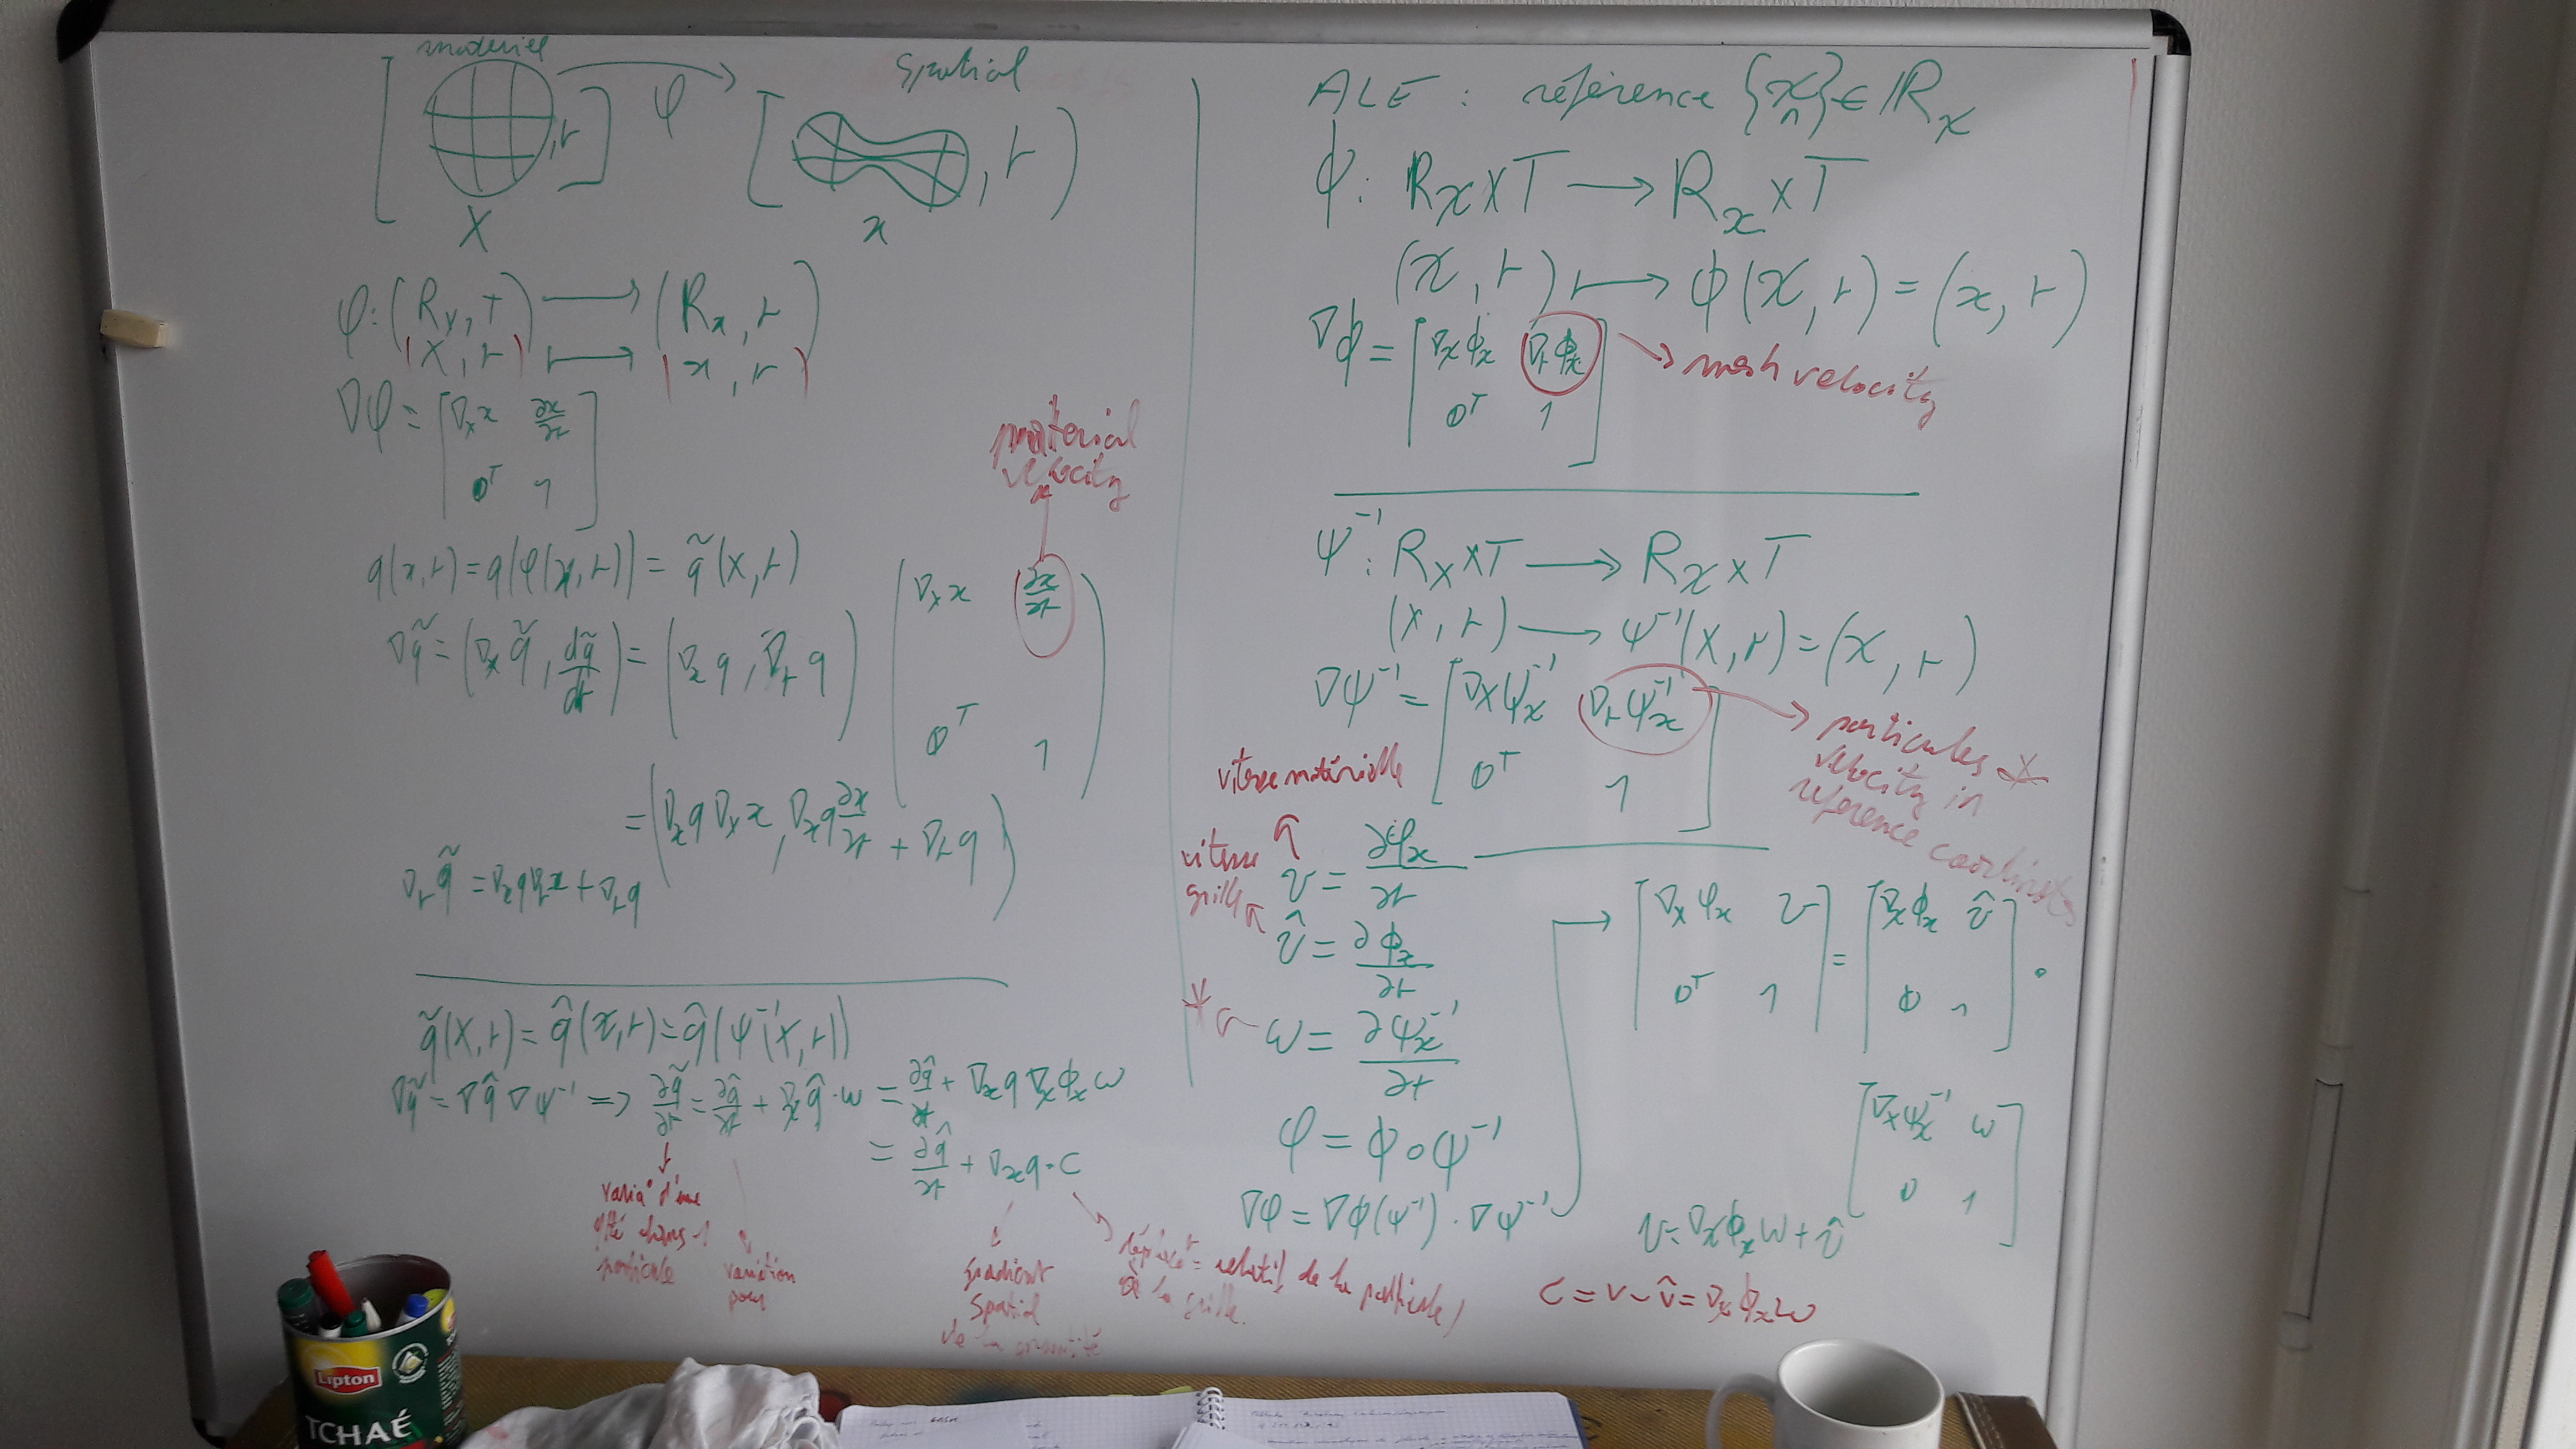 matériel
spatial
[ , t ] φ [ , t )
X x
φ : (R_X, T) ⟶ (R_x, t)
(X, t) ⟼ (x, t)
∇φ = [ ∇_X x ∂x/∂t
0ᵀ 1 ]
material
velocity
q(x,t) = q(φ(X,t)) = q̃(X,t)
∇q̃ = (∇_X q̃, dq̃/dt) = (∇_x q, ∇_t q) ( ∇_X x ∂x/∂t
0ᵀ 1 )
= (∇_x q ∇_X x, ∇_x q ∂x/∂t + ∇_t q)
∇_t q̃ = ∇_x q ∇_t x + ∇_t q
q̃(X,t) = q̂(χ,t) = q̂(ψ⁻¹(X,t))
∇q̃ = ∇q̂ ∇ψ⁻¹ => ∂q̃/∂t = ∂q̂/∂t + ∇_χ q̂ · w = ∂q̂/∂t + ∇_x q ∇_χ ϕ_x w
= ∂q̂/∂t + ∇_x q · c
varia° d'une
qté dans 1
particule
variation
pour
gradient
spatial
de la quantité
déplacet relatif de la particule /
à la grille.
ALE : référence {χ} ∈ R_χ
ϕ : R_χ × T ⟶ R_x × T
(χ, t) ⟼ ϕ(χ, t) = (x, t)
∇ϕ = [ ∇_χ ϕ_x ∇_t ϕ_x
0ᵀ 1 ]
mesh velocity
ψ⁻¹ : R_X × T ⟶ R_χ × T
(X, t) ⟶ ψ⁻¹(X, t) = (χ, t)
∇ψ⁻¹ = [ ∇_X ψ_χ⁻¹ ∇_t ψ_χ⁻¹
0ᵀ 1 ]
particules *
velocity in
reference coordinates
vitesse matérielle
v = ∂φ_x/∂t
vitesse
grille
v̂ = ∂ϕ_x/∂t
* w = ∂ψ_χ⁻¹/∂t
φ = ϕ ∘ ψ⁻¹
∇φ = ∇ϕ(ψ⁻¹) · ∇ψ⁻¹
[ ∇_X φ_x v
0ᵀ 1 ] = [ ∇_χ ϕ_x v̂
0 1 ] ·
[ ∇_X ψ_χ⁻¹ w
0 1 ]
v = ∇_χ ϕ_x w + v̂
c = v - v̂ = ∇_χ ϕ_x w
Lipton
TCHAÉ